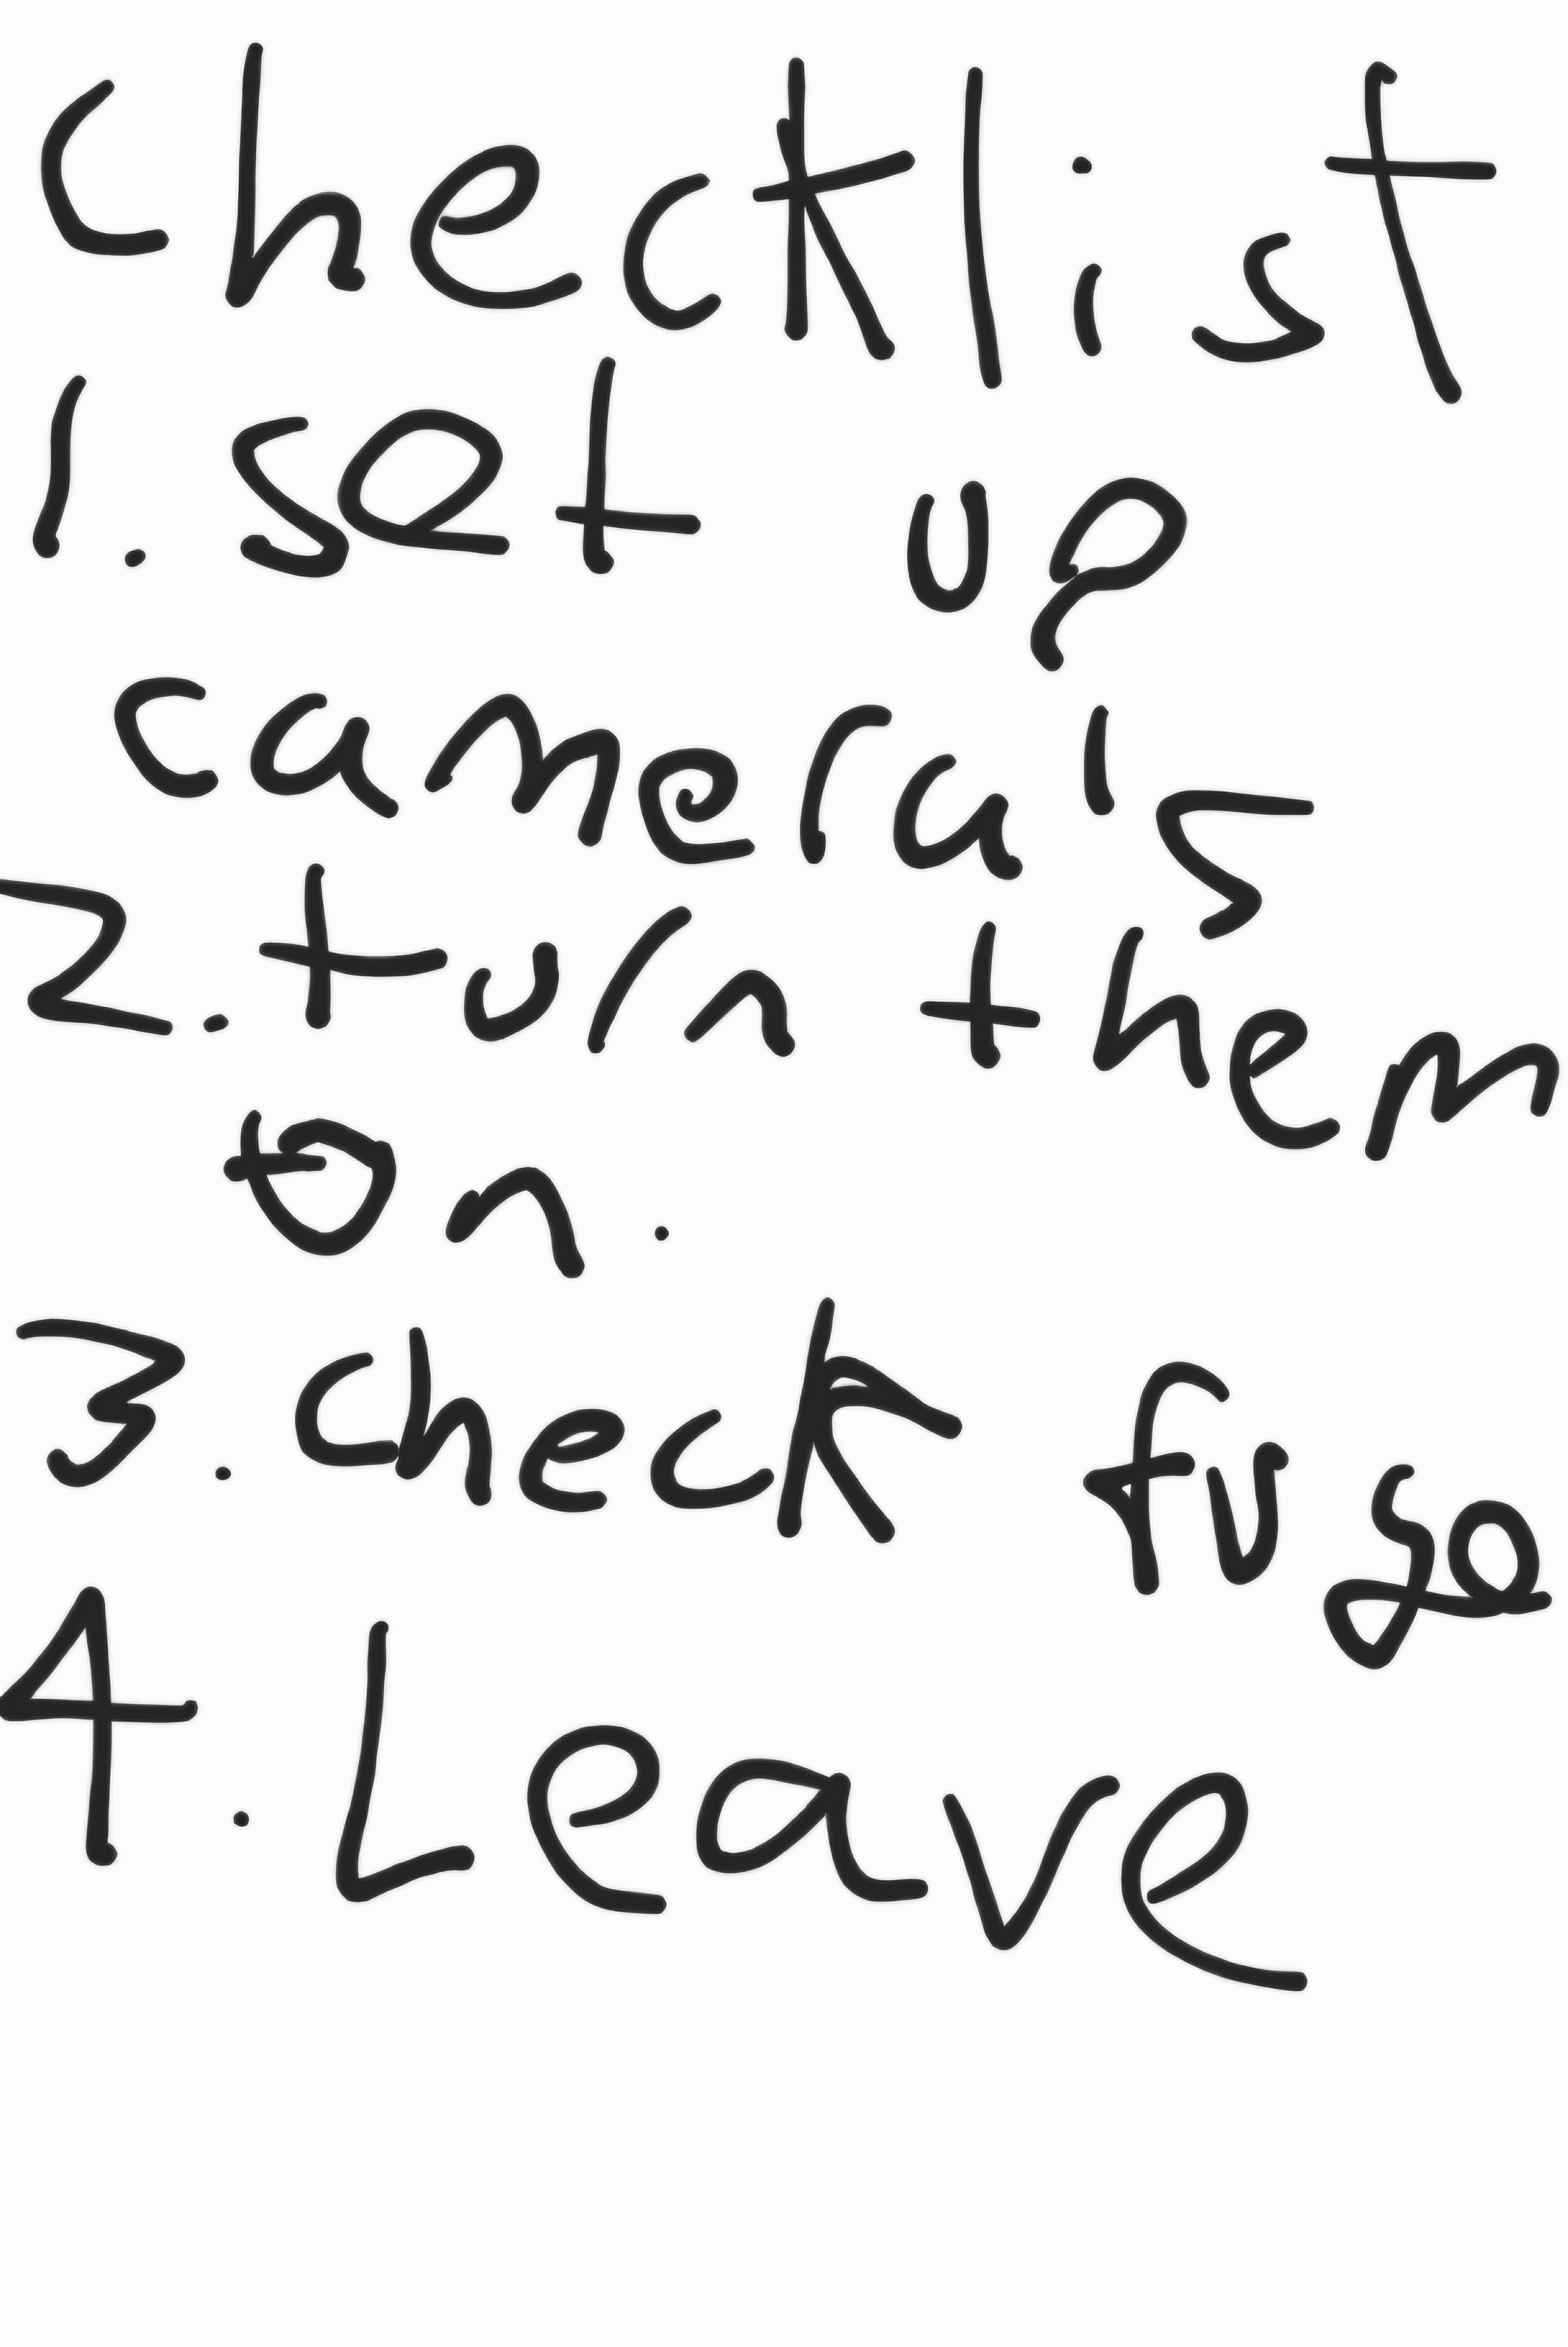 checklist
1. set up
camera's
2. turn them
on.
3. check fuse
4. Leave